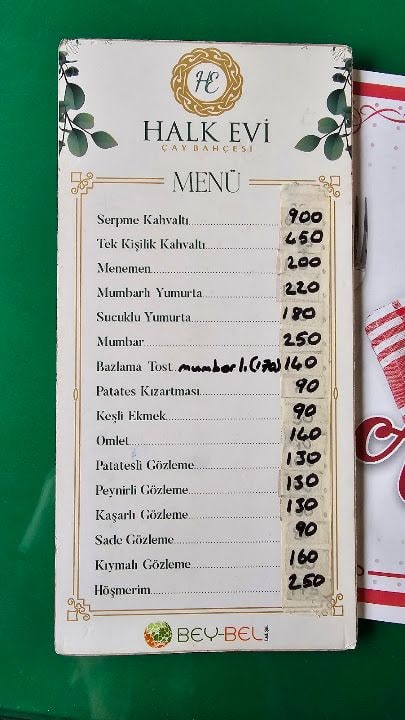 HE
HALK EVİ
ÇAY BAHÇESİ
MENÜ
Serpme Kahvaltı 900
Tek Kişilik Kahvaltı 450
Menemen 200
Mumbarlı Yumurta 220
Sucuklu Yumurta 180
Mumbar 250
Bazlama Tost mumbarlı (170) 140
Patates Kızartması 90
Keşli Ekmek 90
Omlet 140
Patatesli Gözleme 130
Peynirli Gözleme 130
Kaşarlı Gözleme 130
Sade Gözleme 90
Kıymalı Gözleme 160
Höşmerim 250
BEY-BEL